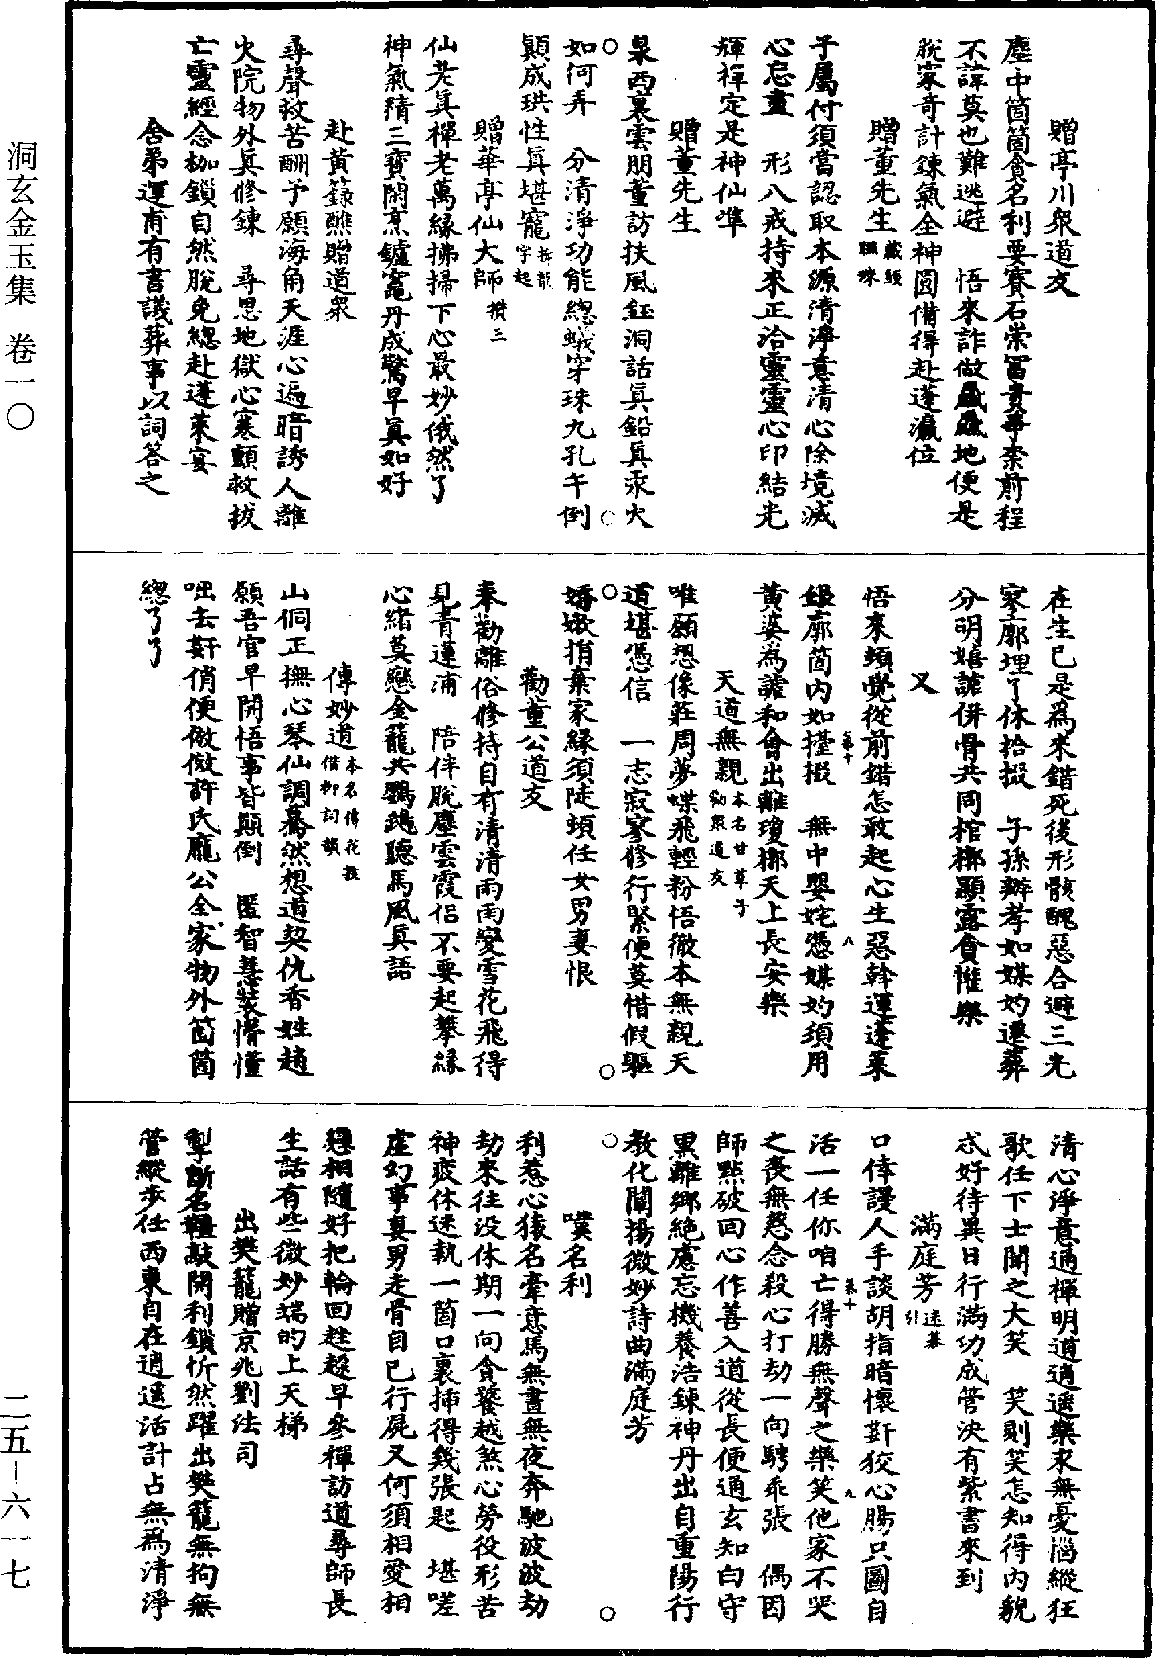 洞玄金玉集　卷一〇
贈亭川衆道友
塵中箇箇貪名利要賽石崇冨貴爭柰前程
不諱莫也難逃避　悟來詐做㿐㿐地便是
脫家竒計鍊氣全神圓備得赴蓬瀛位
贈董先生藏頭
子屬付須當認取本源清淨意清心除境滅
心忘晝　形八戒持來正洽靈靈心印結光
輝禪定是神仙準
贈董先生
泉西裏雲朋董訪扶風鈺洞話眞鉛眞汞火
如何弄　分清淨功能總蟻穿珠九孔午倒
顛成珙性眞堪寵拆龍字起
贈華亭仙大師攢三
仙老眞禪老萬緣拂掃下心最妙俄然了
神氣精三寳閑烹鑪竈丹成驚早眞如好
赴黃籙醮贈道衆
尋聲救苦酬予願海角天涯心遍暗誘人離
火院物外眞修鍊　尋思地獄心寒顫救拔
亡靈經念枷鎖自然脫免總赴蓬萊宴
舍弟運甫有書議葬事以詞答之
在生已是爲來錯死後形骸醜惡合避三光
寥廓埋了休拾掇　子孫辦孝如媒妁遷葬
分明嬉謔併骨共同棺槨顯露貪惟樂
又
悟來頓覺從前錯怎敢起心生惡幹運蓬萊
緑廓箇内如擡掇　無中嬰姹憑媒妁須用
黃婆為謔和會出離瓊槨天上長安樂
天道無親本名甘草子勸衆道友
唯願恐像莊周夢蝶飛輕粉悟徹本無親天
道堪憑信　一志寂寥修行緊便莫惜假軀
嬌嫩捐棄家緣須陡頓任女男妻恨
勸董公道友
奉勸離俗修持自有清清雨雨變雪花飛得
見青蓮浦　陪伴脫塵雲霞侣不要起攀緣
心緒莫戀金籠共鸚鵡聽馬風眞語
傳妙道本名傳花枝借柳詞韻
山侗正撫心琴仙調驀然想道契仇香姓趙
願吾官早開悟事皆顛倒　匿智慧裝懵懂
咄去奸俏便倣倣許氏龐公全家物外箇箇
總了了
清心淨意通禪明道逍遥樂永無憂惱縱狂
歌任下士聞之大笑　笑則笑怎知得内貌
忒好待異日行滿功成管決有紫書來到
滿庭芳迷棊引
口倖謾人手談胡指暗懷姧狡心腸只圖自
活一任你咱亡得勝無聲之樂笑他家不哭
之喪無慈念殺心打劫一向騁乖張　偶因
師㸃破回心作善入道從長便通玄知白守
黒離鄉絶慮忘機養浩鍊神丹出自重陽行
教化闡揚微妙詩曲滿庭芳
嘆名利
利惹心猿名牽意馬無晝無夜奔馳波波劫
劫來往没休期一向貪饕越煞心勞役形苦
神疲休迷執一箇口裏揷得幾張匙　堪嗟
虚幻事妻男走骨自已行屍又何須相愛相
戀相隨好把輪回趓趍早參禪訪道尋師長
生話有些微妙端的上天梯
出樊籠贈京兆劉法司
掣斷名韁敲開利鎖忻然躍出樊籠無拘無
管縱步任西東自在逍遥活計占無爲清淨
二五－六一七